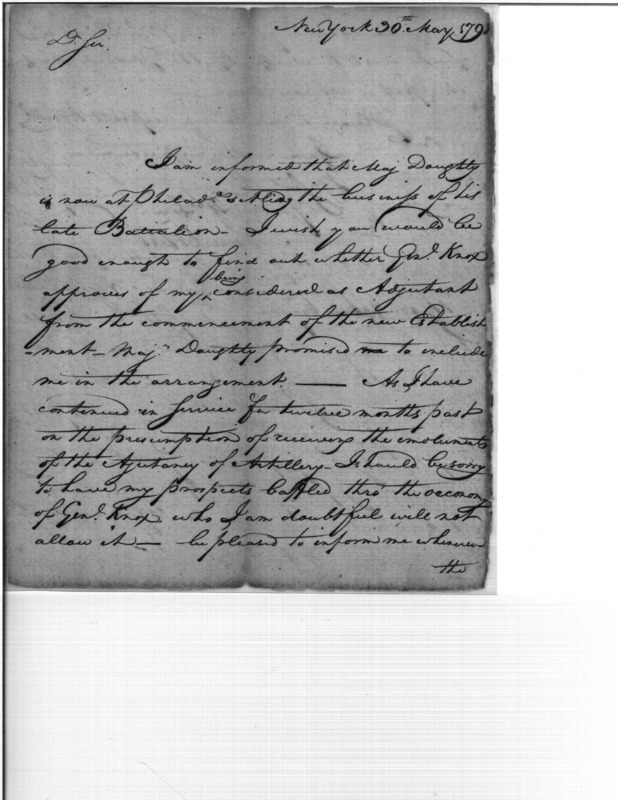 New York 30th May, 179
Dr Sir.
I am informed that Maj Doughty
is now at Philada settling the business of his
late Battalion - I wish you would be
good enough to find out whether Genl Knox
approves of my being considered as Adjutant
from the commencement of the new Establish
-ment - Majr Doughty promised me to include
me in the arrangement — As I have
continued in Service for twelve months past
on the presumption of receiving the emoluments
of the Ajutancy of Artillery - I should be sorry
to have my prospects baffled thro the oeconomy
of Genl Knox who I am doubtful will not
allow it - be pleased to inform me whenever
the